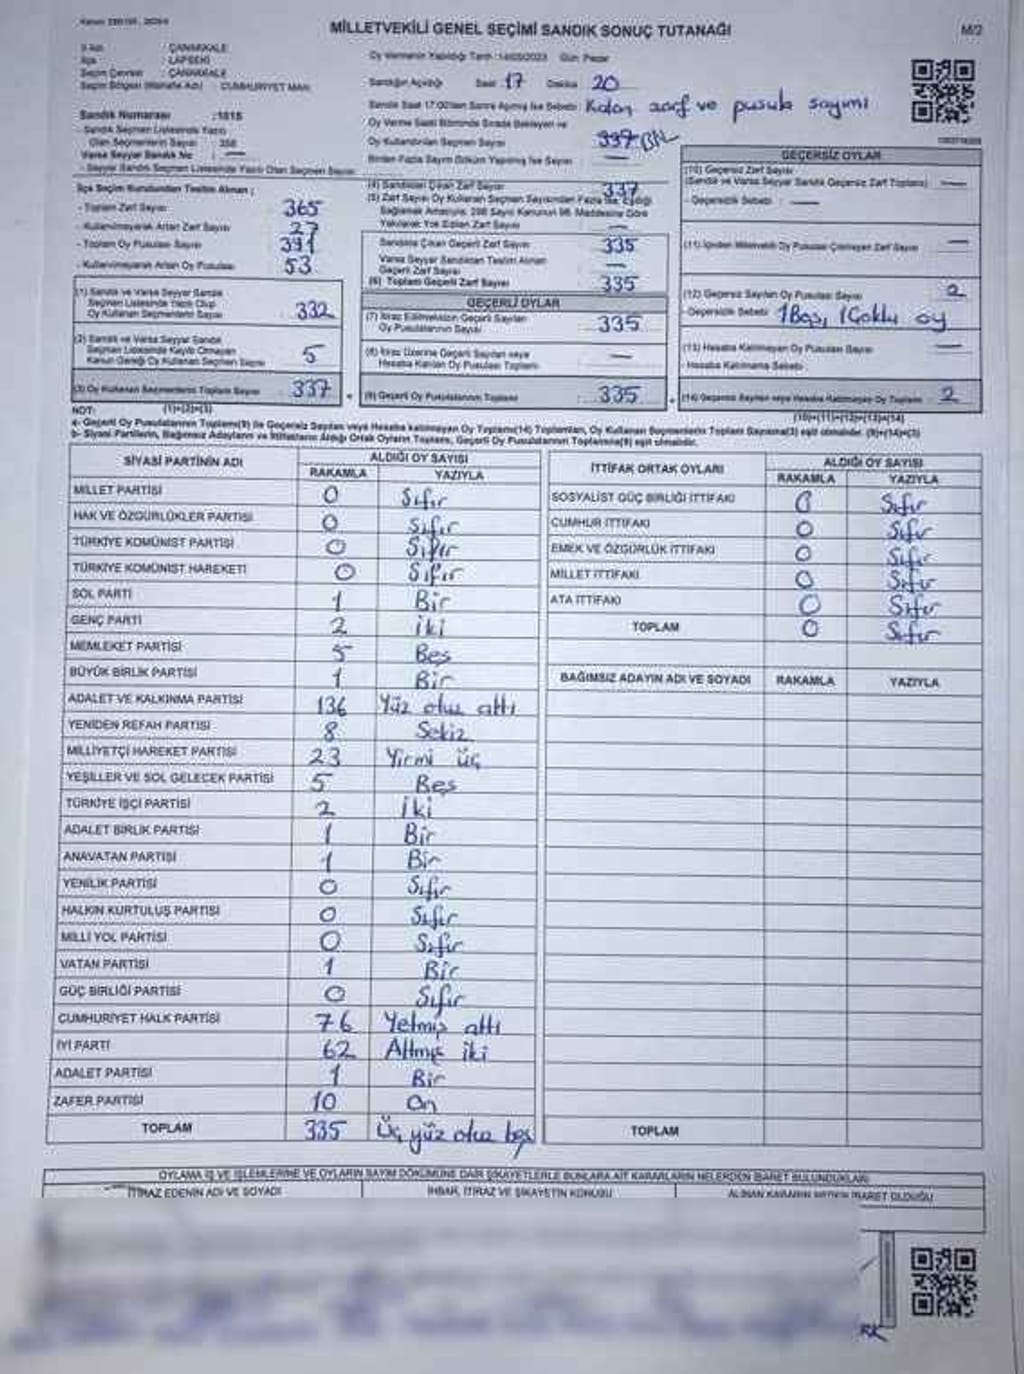 MİLLETVEKİLİ GENEL SEÇİMİ SANDIK SONUÇ TUTANAĞI
M/2
İl Adı : ÇANAKKALE
İlçe : LAPSEKİ
Seçim Çevresi : ÇANAKKALE
Seçim Bölgesi (Mahalle Adı) : CUMHURİYET MAH.
Sandık Numarası :1018
- Sandık Seçmen Listesinde Yazılı
Olan Seçmenlerin Sayısı : 358
Varsa Seyyar Sandık No : —
- Seyyar Sandık Seçmen Listesinde Yazılı Olan Seçmen Sayısı
Oy Vermenin Yapıldığı Tarih :14/05/2023 Gün: Pazar
Sandığın Açıldığı Saat : 17 Dakika : 20
Sandık Saat 17:00'den Sonra Açılmış İse Sebebi: Kalan zarf ve pusula sayımı
Oy Verme Saati Bitiminde Sırada Bekleyen ve
Oy Kullandırılan Seçmen Sayısı 337
Birden Fazla Sayım Döküm Yapılmış İse Sayısı —
İlçe Seçim Kurulundan Teslim Alınan :
- Toplam Zarf Sayısı 365
- Kullanılmayarak Artan Zarf Sayısı 27
- Toplam Oy Pusulası Sayısı 391
- Kullanılmayarak Artan Oy Pusulası 53
(1) Sandık ve Varsa Seyyar Sandık
Seçmen Listesinde Yazılı Olup
Oy Kullanan Seçmenlerin Sayısı 332
(2) Sandık ve Varsa Seyyar Sandık
Seçmen Listesinde Kayıtlı Olmayan
Kanun Gereği Oy Kullanan Seçmen Sayısı 5
(3) Oy Kullanan Seçmenlerin Toplam Sayısı 337
(1)+(2)=(3)
(4) Sandıktan Çıkan Zarf Sayısı 337
(5) Zarf Sayısı Oy Kullanan Seçmen Sayısından Fazla İse, Eşitliği
Sağlamak Amacıyla; 298 Sayılı Kanunun 98. Maddesine Göre
Yakılarak Yok Edilen Zarf Sayısı —
Sandıkta Çıkan Geçerli Zarf Sayısı 335
Varsa Seyyar Sandıktan Teslim Alınan
Geçerli Zarf Sayısı —
(6) Toplam Geçerli Zarf Sayısı 335
GEÇERLİ OYLAR
(7) İtiraz Edilmeksizin Geçerli Sayılan
Oy Pusulalarının Sayısı 335
(8) İtiraz Üzerine Geçerli Sayılan veya
Hesaba Katılan Oy Pusulası Toplamı —
(9) Geçerli Oy Pusulalarının Toplamı 335
GEÇERSİZ OYLAR
(10) Geçersiz Zarf Sayısı
(Sandık ve Varsa Seyyar Sandık Geçersiz Zarf Toplamı) —
- Geçersizlik Sebebi : —
(11) İçinden Milletvekili Oy Pusulası Çıkmayan Zarf Sayısı —
(12) Geçersiz Sayılan Oy Pusulası Sayısı 2
- Geçersizlik Sebebi : 1 Boş, 1 Çoklu oy
(13) Hesaba Katılmayan Oy Pusulası Sayısı —
- Hesaba Katılmama Sebebi :
(14) Geçersiz Sayılan veya Hesaba Katılmayan Oy Toplamı 2
(10)+(11)+(12)+(13)=(14)
NOT:
a- Geçerli Oy Pusulalarının Toplamı(9) ile Geçersiz Sayılan veya Hesaba katılmayan Oy Toplamı(14) Toplamları, Oy Kullanan Seçmenlerin Toplam Sayısına(3) eşit olmalıdır. (9)+(14)=(3)
b- Siyasi Partilerin, Bağımsız Adayların ve İttifakların Aldığı Ortak Oyların Toplamı, Geçerli Oy Pusulalarının Toplamına(9) eşit olmalıdır.
SİYASİ PARTİNİN ADI ALDIĞI OY SAYISI
RAKAMLA YAZIYLA
MİLLET PARTİSİ 0 Sıfır
HAK VE ÖZGÜRLÜKLER PARTİSİ 0 Sıfır
TÜRKİYE KOMÜNİST PARTİSİ 0 Sıfır
TÜRKİYE KOMÜNİST HAREKETİ 0 Sıfır
SOL PARTİ 1 Bir
GENÇ PARTİ 2 İki
MEMLEKET PARTİSİ 5 Beş
BÜYÜK BİRLİK PARTİSİ 1 Bir
ADALET VE KALKINMA PARTİSİ 136 Yüz otuz altı
YENİDEN REFAH PARTİSİ 8 Sekiz
MİLLİYETÇİ HAREKET PARTİSİ 23 Yirmi üç
YEŞİLLER VE SOL GELECEK PARTİSİ 5 Beş
TÜRKİYE İŞÇİ PARTİSİ 2 İki
ADALET BİRLİK PARTİSİ 1 Bir
ANAVATAN PARTİSİ 1 Bir
YENİLİK PARTİSİ 0 Sıfır
HALKIN KURTULUŞ PARTİSİ 0 Sıfır
MİLLİ YOL PARTİSİ 0 Sıfır
VATAN PARTİSİ 1 Bir
GÜÇ BİRLİĞİ PARTİSİ 0 Sıfır
CUMHURİYET HALK PARTİSİ 76 Yetmiş altı
İYİ PARTİ 62 Altmış iki
ADALET PARTİSİ 1 Bir
ZAFER PARTİSİ 10 On
TOPLAM 335 Üç yüz otuz beş
İTTİFAK ORTAK OYLARI ALDIĞI OY SAYISI
RAKAMLA YAZIYLA
SOSYALİST GÜÇ BİRLİĞİ İTTİFAKI 0 Sıfır
CUMHUR İTTİFAKI 0 Sıfır
EMEK VE ÖZGÜRLÜK İTTİFAKI 0 Sıfır
MİLLET İTTİFAKI 0 Sıfır
ATA İTTİFAKI 0 Sıfır
TOPLAM 0 Sıfır
BAĞIMSIZ ADAYIN ADI VE SOYADI RAKAMLA YAZIYLA
TOPLAM
OYLAMA İŞ VE İŞLEMLERİNE VE OYLARIN SAYIM DÖKÜMÜNE DAİR ŞİKAYETLERLE BUNLARA AİT KARARLARIN NELERDEN İBARET BULUNDUKLARI
İTİRAZ EDENİN ADI VE SOYADI İHBAR, İTİRAZ VE ŞİKAYETİN KONUSU ALINAN KARARIN NEDEN İBARET OLDUĞU